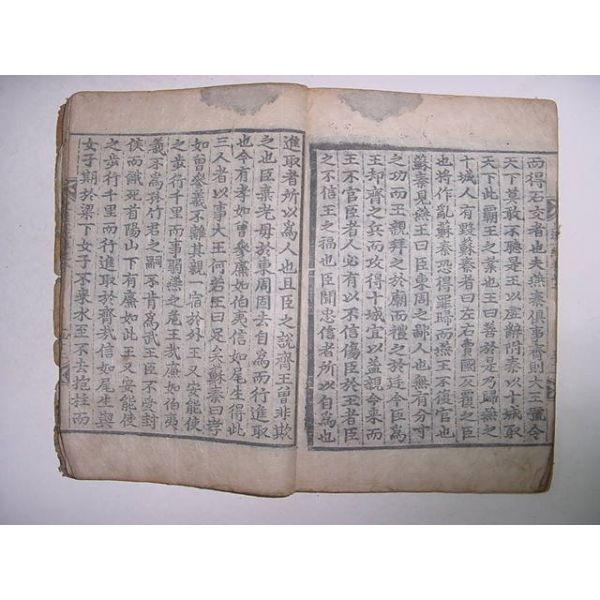 而得石交者也夫燕秦俱事齊則大王號令
天下莫敢不聽是王以虛辭附秦以十城取
天下此霸王之業也王曰善於是乃歸燕之
十城人有毀蘇秦者曰左右賣國反覆之臣
也將作亂蘇秦恐得罪歸而燕王不復官也
蘇秦見燕王曰臣東周之鄙人也無有分寸
之功而王親拜之於廟而禮之於廷今臣爲
王却齊之兵而攻得十城宜以益親今來而
王不官臣者人必有以不信傷臣於王者臣
之不信王之福也臣聞忠信者所以自爲也
進取者所以爲人也且臣之說齊王曾非欺
之也臣棄老母於東周固去自爲而行進取
也今有孝如曾參廉如伯夷信如尾生得此
三人者以事大王何若王曰足矣蘇秦曰孝
如曾參義不離其親一宿於外王又安能使
之步行千里而事弱燕之危王哉廉如伯夷
義不爲孤竹君之嗣不肯爲武王臣不受封
侯而餓死首陽山下有廉如此王又安能使
之步行千里而行進取於齊哉信如尾生與
女子期於梁下女子不來水至不去抱柱而